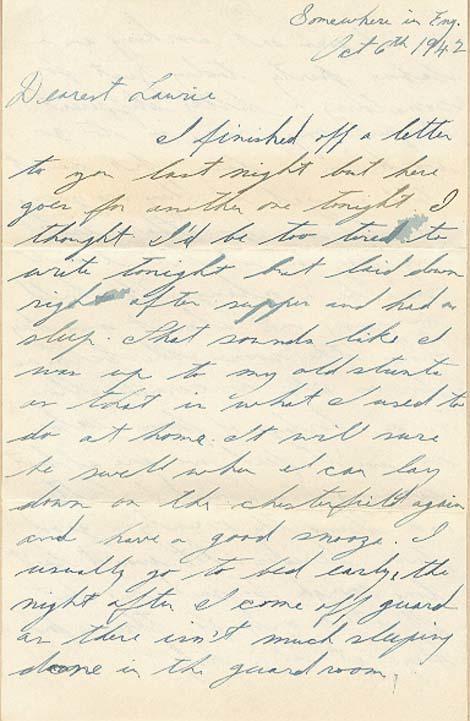 Somewhere in Eng.
Oct 6th 1942
Dearest Laurie
I finished off a letter
to you last night but here
goes for another one tonight I
thought I'd be too tired to
write tonight but laid down
right after supper and had a
sleep. That sounds like I
was up to my old stunts
as that is what I used to
do at home. It will sure
be swell when I can lay
down on the chesterfield again
and have a good snooze. I
usually go to bed early, the
night after I come off guard
as there isn't much sleeping
done in the guard room,